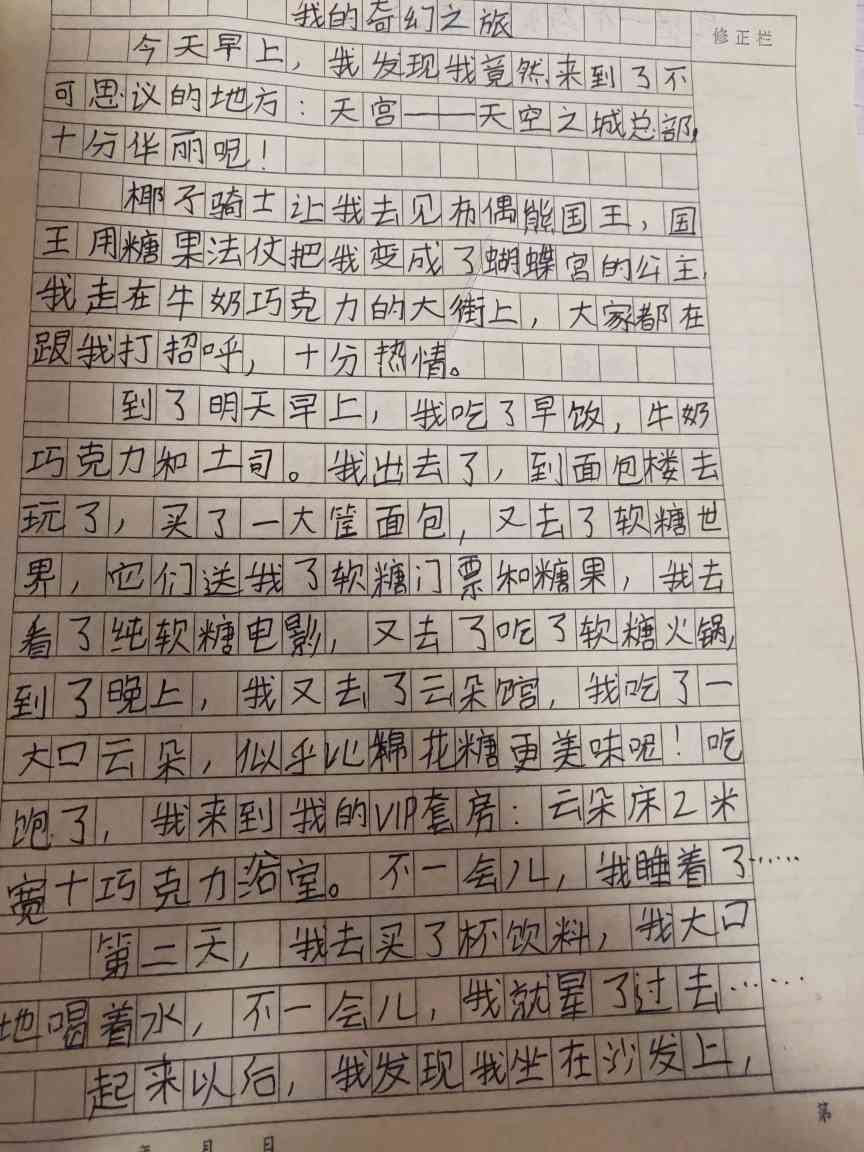 我的奇幻之旅
修正栏
今天早上，我发现我竟然来到了不
可思议的地方：天宫——天空之城总部，
十分华丽呢！
椰子骑士让我去见布偶熊国王，国
王用糖果法仗把我变成了蝴蝶宫的公主，
我走在牛奶巧克力的大街上，大家都在
跟我打招呼，十分热情。
到了明天早上，我吃了早饭，牛奶
巧克力和土司。我出去了，到面包楼去
玩了，买了一大筐面包，又去了软糖世
界，它们送我了软糖门票和糖果，我去
看了纯软糖电影，又去了吃了软糖火锅，
到了晚上，我又去了云朵馆，我吃了一
大口云朵，似乎比棉花糖更美味呢！吃
饱了，我来到我的VIP套房：云朵床2米
宽十巧克力浴室。不一会儿，我睡着了……
第二天，我去买了杯饮料，我大口
地喝着水，不一会儿，我就晕了过去……
起来以后，我发现我坐在沙发上，
第
年 月 日